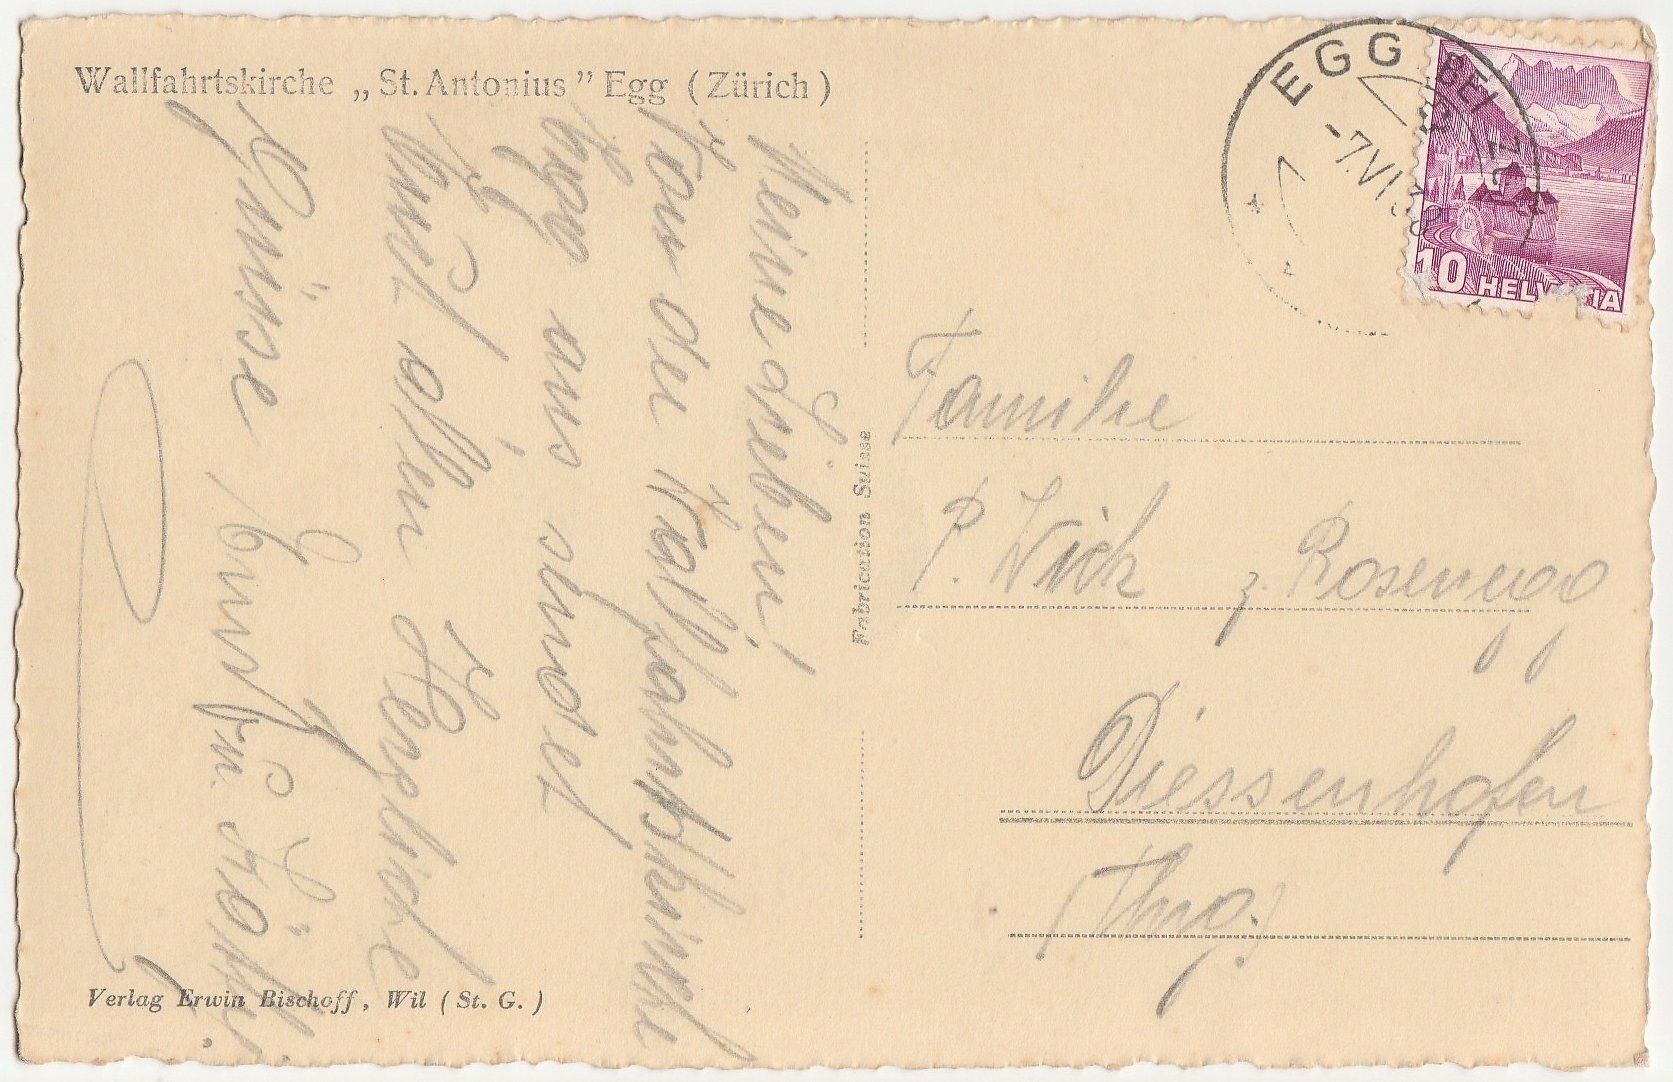 Wallfahrtskirche „St. Antonius” Egg (Zürich)
EGG BEI ZCH
-7.VI.38
10 HELVETIA
Meine Lieben!
Von der Wallfahrtskirche
Egg aus sendet
Euch allen Herzliche
Grüsse
Fabrication Suisse
Familie
P. Wick z. Rosenegg
Diessenhofen
(Thrg.)
Verlag Erwin Bischoff, Wil (St. G.)